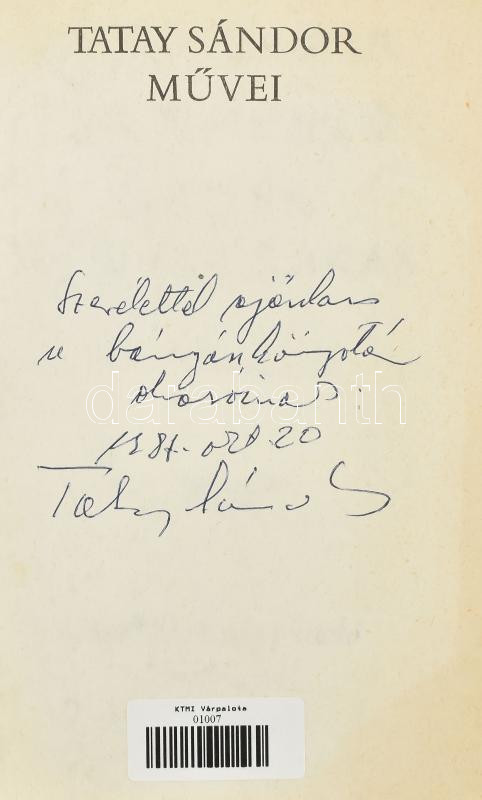 TATAY SÁNDOR
MŰVEI
Szeretettel ajánlom
a bányászkönyvtár
olvasóinak:
1981. okt. 20
Tatay Sándor
darabanth
KTMI Várpalota
01007